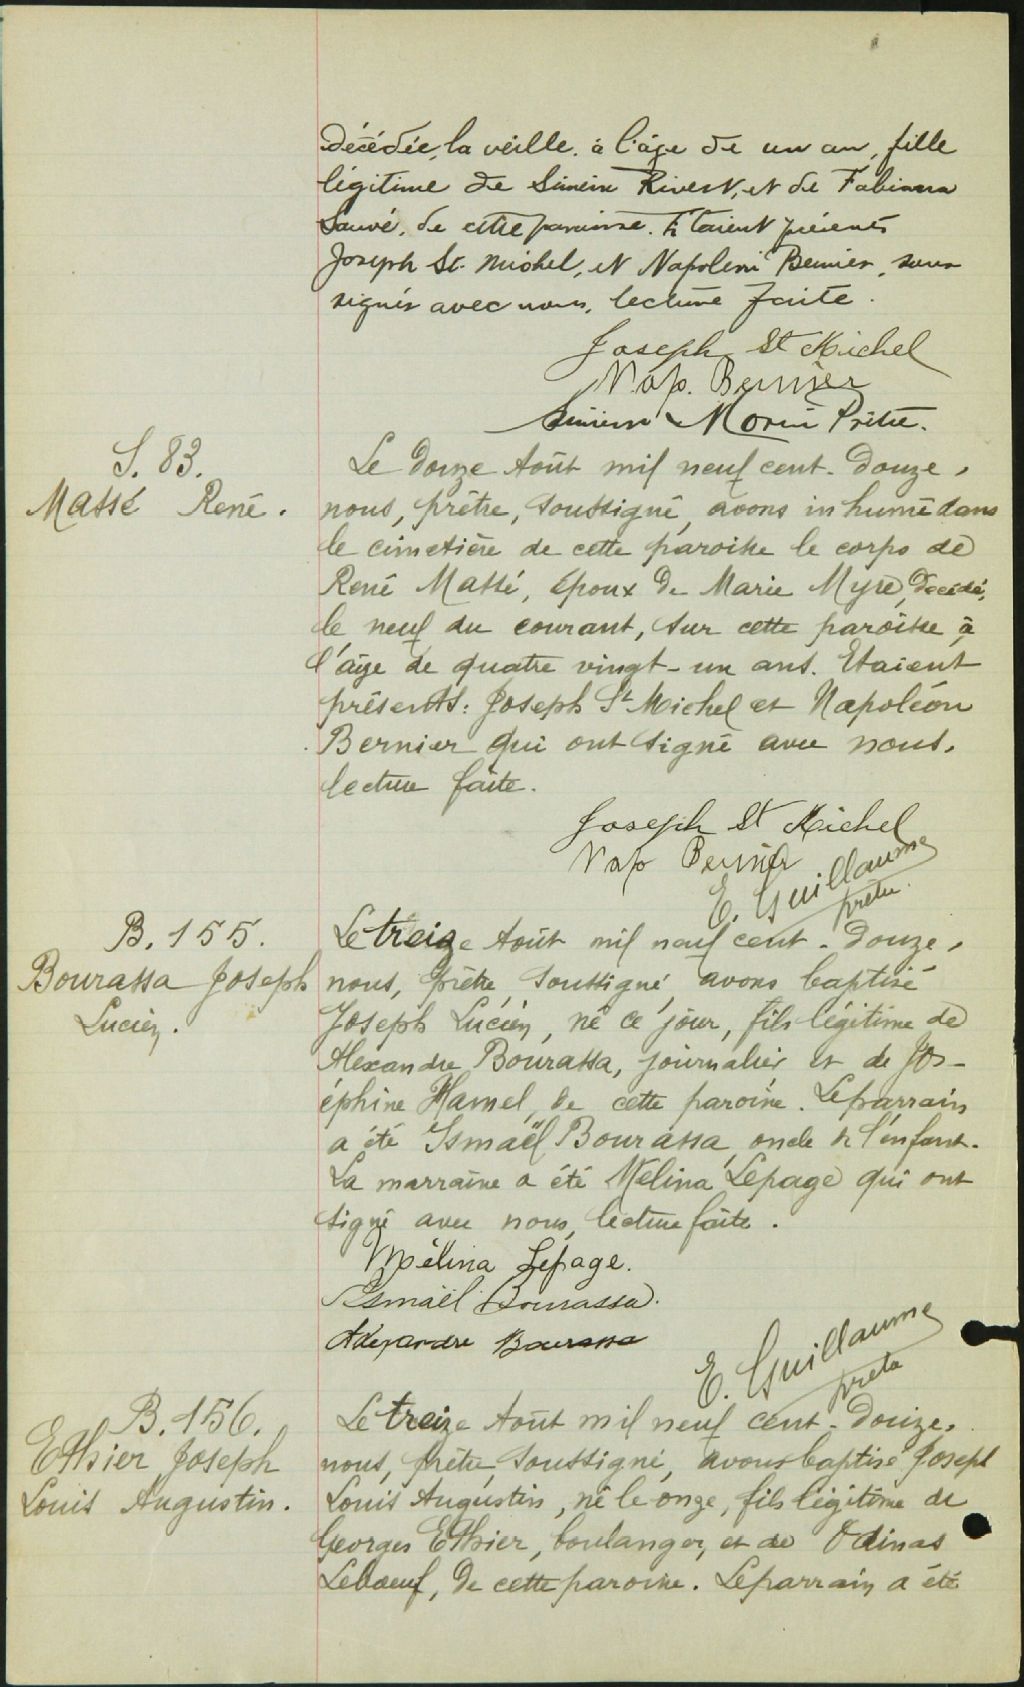 décédée, la veille. à l'âge de un an, fille
légitime de Siméon Rivest, et de Fabianna
Sauvé, de cette paroisse. Etaient présents
Joseph St. Michel, et Napoléon Bernier, sous
signés avec nous, lecture faite.
Joseph St Michel
Nap. Bernier
Morin Prêtre.
S. 83.
Massé René.
Le douze Août mil neuf cent-douze,
nous, prêtre, soussigné, avons inhumé dans
le cimetière de cette paroisse le corps de
René Massé, époux de Marie Myre, décédé,
le neuf du courant, sur cette paroisse à
l'âge de quatre vingt-un ans. Etaient
présents: Joseph St Michel et Napoléon
Bernier qui ont signé avec nous,
lecture faite.
Joseph St Michel
Nap Bernier
E. Guillaume
prêtre.
B. 155.
Bourassa Joseph
Lucien.
Le treize Août mil neuf cent-douze,
nous, prêtre, soussigné, avons baptisé
Joseph Lucien, né ce jour, fils légitime de
Alexandre Bourassa, journalier et de Jos-
éphine Hamel, de cette paroisse. Le parrain
a été Ismaël Bourassa, oncle de l'enfant.
La marraine a été Mélina Lepage qui ont
signé avec nous, lecture faite.
Mélina Lepage.
Ismaël Bourassa.
Alexandre Bourassa
E. Guillaume
prêtre
B. 156.
Ethier Joseph
Louis Augustin.
Le treize Août mil neuf cent-douze,
nous, prêtre, soussigné, avons baptisé Joseph
Louis Augustin, né le onze, fils légitime de
Georges Ethier, boulanger, et de Odinas
Leboeuf, de cette paroisse. Le parrain a été